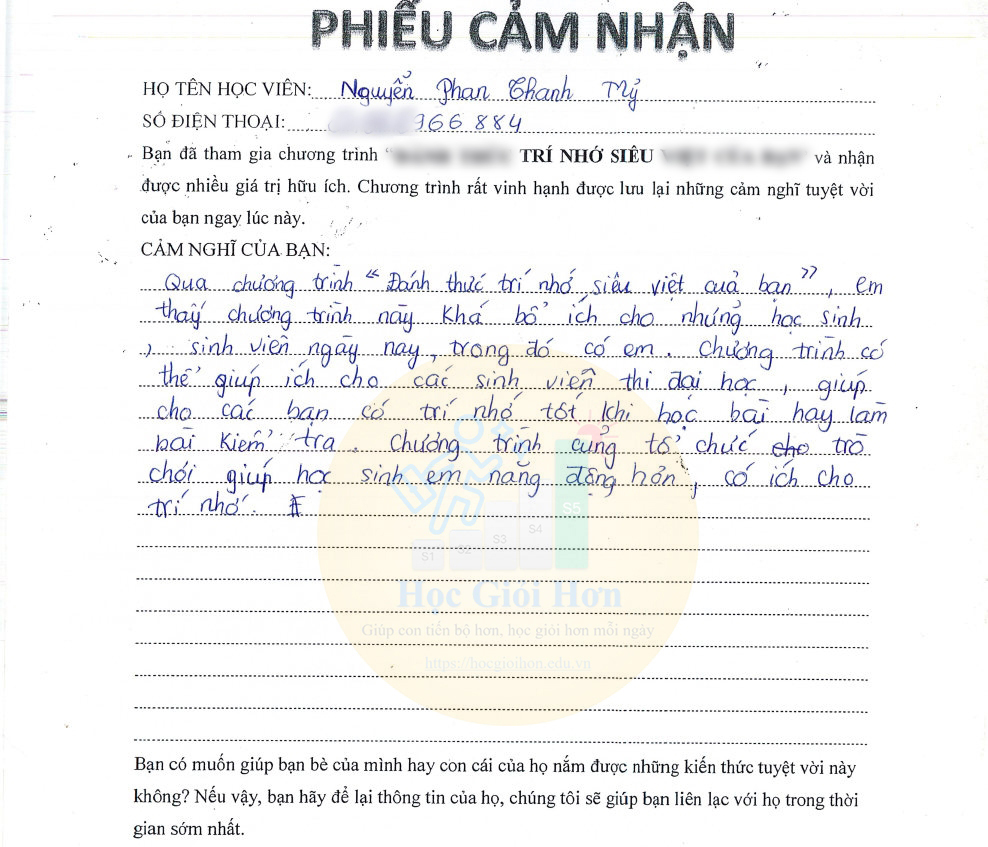 PHIẾU CẢM NHẬN
HỌ TÊN HỌC VIÊN: Nguyễn Phan Thanh Mỹ
SỐ ĐIỆN THOẠI: 966 884
Bạn đã tham gia chương trình " TRÍ NHỚ SIÊU và nhận
được nhiều giá trị hữu ích. Chương trình rất vinh hạnh được lưu lại những cảm nghĩ tuyệt vời
của bạn ngay lúc này.
CẢM NGHĨ CỦA BẠN:
Qua chương trình "Đánh thức trí nhớ siêu việt của bạn", em
thấy chương trình này khá bổ ích cho những học sinh
, sinh viên ngày nay, trong đó có em. Chương trình có
thể giúp ích cho các sinh viên thi đại học, giúp
cho các bạn có trí nhớ tốt khi học bài hay làm
bài kiểm tra. Chương trình cũng tổ chức cho trò
chơi giúp học sinh em năng động hơn, có ích cho
trí nhớ.
S1 S2 S3 S4 S5
Học Giỏi Hơn
Giúp con tiến bộ hơn, học giỏi hơn mỗi ngày
https://hocgioihon.edu.vn
Bạn có muốn giúp bạn bè của mình hay con cái của họ nắm được những kiến thức tuyệt vời này
không? Nếu vậy, bạn hãy để lại thông tin của họ, chúng tôi sẽ giúp bạn liên lạc với họ trong thời
gian sớm nhất.